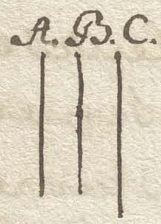 A. B. C.